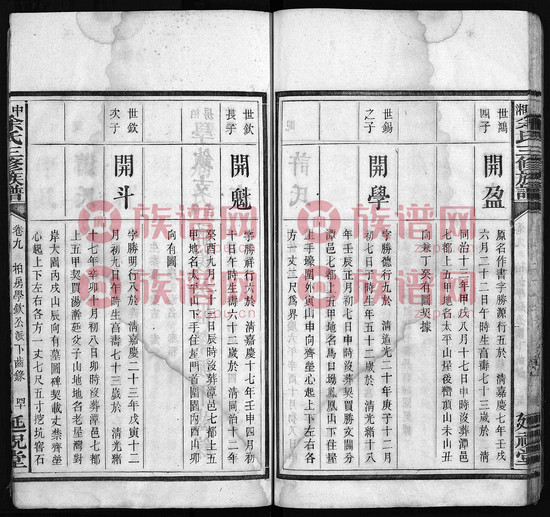 湘
余氏三修族譜
世鴻
四子
開盈
原名作書字勝源行五於 清嘉慶七年壬戌
六月二十二日午時生高壽七十二歲於 清
同治十二年甲戌八月十七日申時沒葬潭邑
七都上五甲地名太平山屋後巒頂山未山丑
向兼丁癸有圖契據
世錫
之子
開學
字勝德行九於 清道光二十年庚子十二月
初七日丁時生年五十二歲於 清光緒十八
年壬辰正月初三日戌時沒葬契買勝文關分
潭邑七都上五甲地名馬口坳鳳凰山下住屋
上手壕閣外寅山申向齊塋心起上下左右各
方一丈二尺為界
世欽
長子
開魁
字勝祥行八於 清嘉慶十七年壬申四月初
十日午時生壽六十二歲於 清同治十二年
癸酉九月二十一日辰時沒葬潭邑七都上五
甲地名太平山下手住屋門首園園內酉山卯
向有圖
世欽
次子
開斗
字勝明行八於 清嘉慶二十三年戊寅十二
月初九日午時生高壽七十三歲於 清光緒
十七年辛卯十月初八日卯時沒葬潭邑七都
上五甲契買湯瀚延父子山地地名老屋灣對
岸大園內戌山辰向有墓圖碑契載丈禁齊塋
心起上下左右各方一丈七尺五寸挖坑窖石
中
余氏三修族譜
卷九
柏房學欽公派下齒錄
延祝堂
族谱网